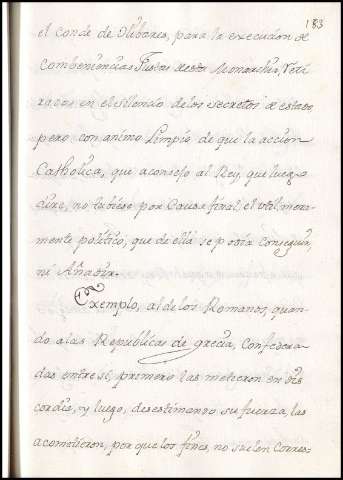 183
el Conde de Olibares, para la execucion de
Combeniencias Justas deesta Monarchia, reti
radas en el silencio de los secretos de estado
pero con animo Limpio de que la accion
Catholica, que aconsejo al Rey, que luego
dire, no tubiese por Causa final, el util mera-
mente politico, que de ella se podia conseguir,
ni Añadir.
Exemplo, al de los Romanos, quan-
do a las Republicas de grecia, Confedera-
das entre si, primero las metieron en dis
cordia, y luego, desestimando su fuerza, las
acometieron, por que los fines, no suelen Corres-